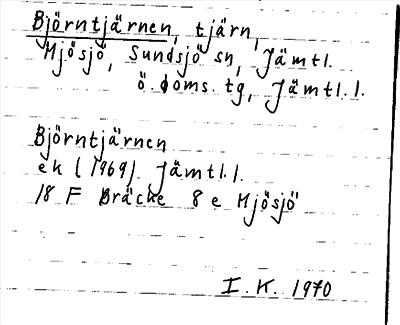 Björntjärnen, tjärn,
Mjösjö, Sundsjö sn, Jämtl.
ö. doms. tg, Jämtl. l.
Björntjärnen
ek (1969) Jämtl. l.
18 F Bräcke 8 e Mjösjö
I. K. 1970